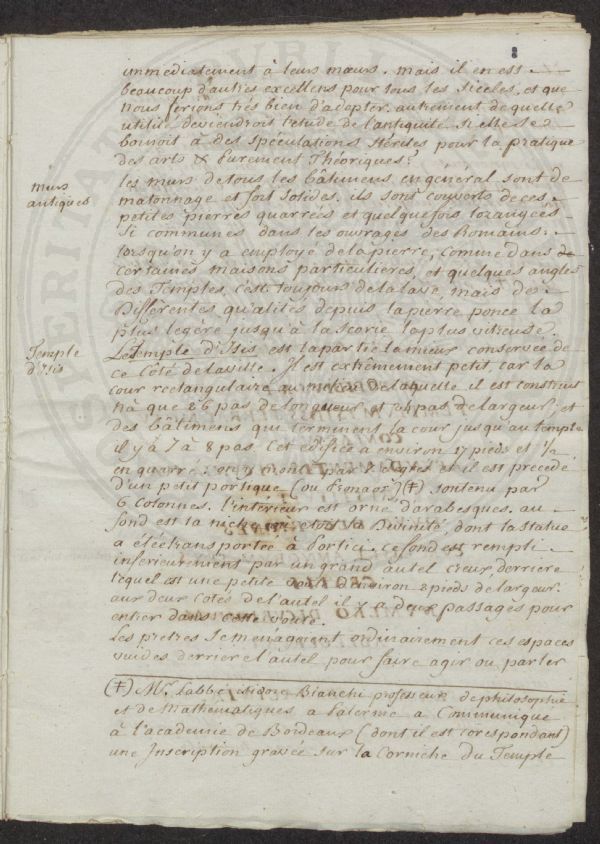 8
immediatement à leurs mœurs. mais il en est
beaucoup d'autres excellens pour tous les siecles, et que
nous ferions très bien d'adopter. autrement de quelle
utilité deviendroit l'etude de l'antiquité si elle se
bornoit à des spéculations stériles pour la pratique
des arts & purement Théoriques?
murs
antiques
les murs de tous les bâtimens en général sont de
matonnage et fort solides. ils sont couverts de ces
petites pierres quarrées et quelquefois lozangées
si communes dans les ouvrages des Romains.
lorsqu'on y a employé de la pierre, comme dans de
certaines maisons particulieres, et quelques angles
des Temples, c'est toujours de la lave, mais de
différentes qualités depuis la pierre ponce la
plus legère jusqu'à la scorie la plus vitreuse.
Temple
d'Isis
Le temple d'Isis est la partie la mieux conservée de
ce côté de la ville. Il est extrêmement petit, car la
cour rectangulaire au milieu de laquelle il est construit
n'a que 26 pas de longueur et pas de largeur; et
des bâtimens qui terminent la cour jusqu'au temple
il y a 7 à 8 pas. Cet edifice a environ 17 pieds et ½
en quarré: on y monte par degrés et il est précédé
d'un petit portique (ou Pronaos) (‡) soutenu par
6 colonnes. l'interieur est orné d'arabesques. au
fond est la niche où etoit la Divinité, dont la statue
a été transportée à Portici. ce fond est rempli
inferieurement par un grand autel creux derriere
lequel est une petite environ 2 pieds de largeur.
aux deux cotés de l'autel il y a deux passages pour
entrer dans cette voute.
Les prêtres se menageoient ordinairement ces espaces
vuides derriere l'autel pour faire agir ou parler
(‡) Mr. l'abbé isidore Bianchi professeur de philosophie
et de Mathématiques a Palerme a Communiqué
à l'academie de Bordeaux (dont il est corespondant)
une Inscription gravée sur la Corniche du Temple